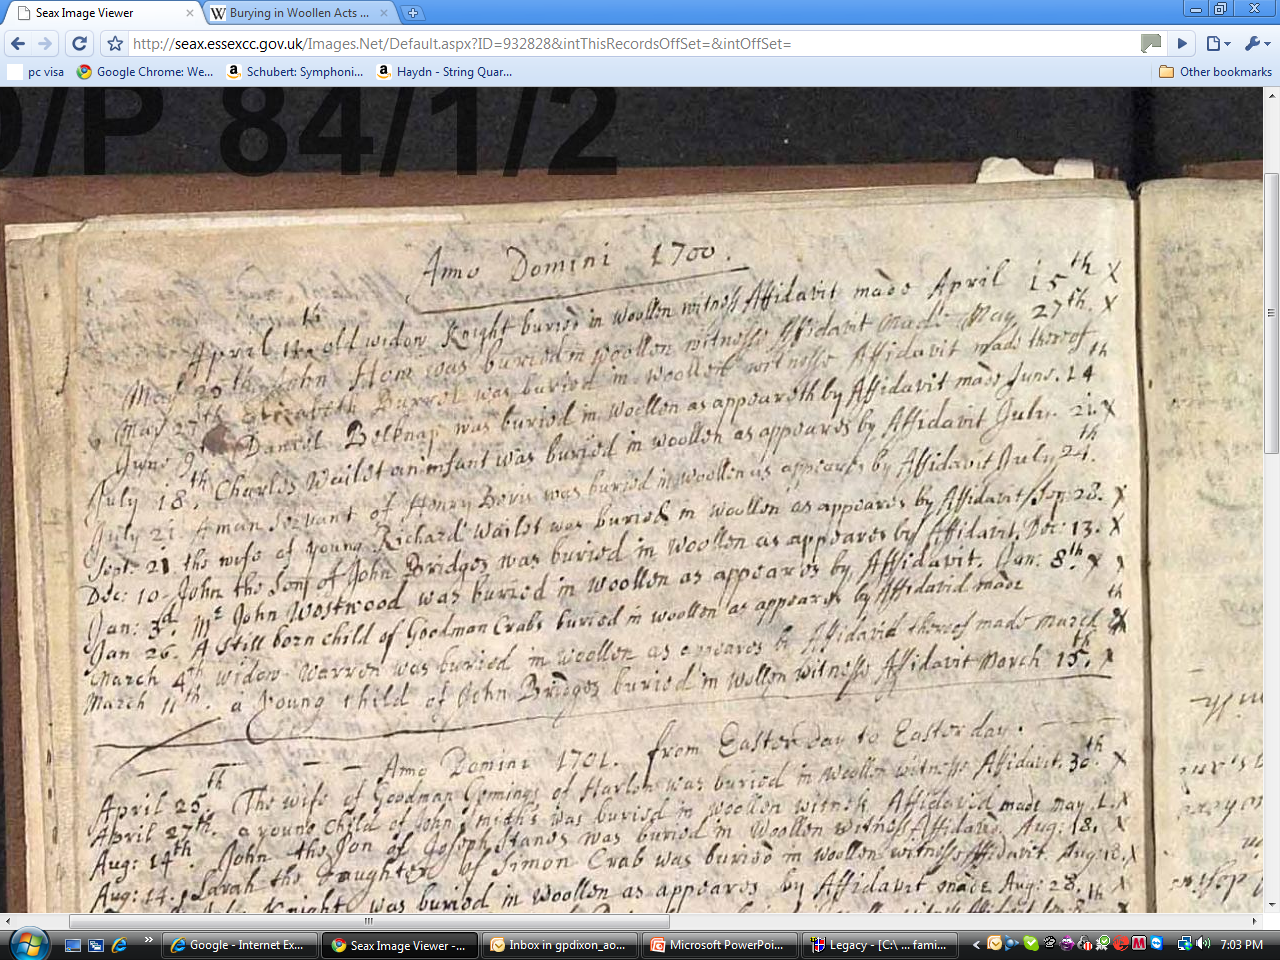 Seax Image Viewer
Burying in Woollen Acts ...
http://seax.essexcc.gov.uk/Images.Net/Default.aspx?ID=932828&intThisRecordsOffSet=&intOffSet=
pc visa
Google Chrome: We...
Schubert: Symphoni...
Haydn - String Quar...
Other bookmarks
/P 84/1/2
Anno Domini 1700.
April 11th old widow Knight buried in woollen witness Affidavit made April 15th X
May 20th John Hom was buried in woollen witnesse Affidavit made May 27th. X
May 27th Elizabeth Burrel was buried in woollen witnesse Affidavit made thereof
June 9th Daniel Belknap was buried in woollen as appeareth by Affidavit made June. 14th
July 18th. Charles Wailet an infant was buried in woollen as appeares by Affidavit July. 21. X
July 21. A man servant of Henry was buried in woollen as appeares by Affidavit July 24th.
Sept. 21 the wife of young Richard Wailet was buried in woollen as appeares by Affidavit Sep: 28. X
Dec: 10. John the Son of John Bridges was buried in woollen as appeares by Affidavit. Dec: 13. X
Jan: 3d. Mr John Westwood was buried in woollen as appeares by Affidavit. Jan: 8th. X X
Jan 26. A Still born child of Goodman Crabs buried in woollen as appeares by Affidavid made
March 4th widow Warren was buried in woollen as appeares by Affidavid thereof made March th X
March 11th. a young child of John Bridges buried in wollen witnesse Affidavit March 15th. X
Anno Domini 1701. from Easter day to Easter day.
April 25th. The wife of Goodman of Harlow was buried in woollen witnesse Affidavit. 30th X
April 27th. a young child of John Smith's was buried in woollen witness Affidavid made May. 1. X
Aug: 14th. John the Son of Joseph Stanes was buried in Woollen witness Affidavid. Aug: 18. X
Aug: 14. Sarah the Daughter of Simon Crab was buried in woollen witnesse Affidavit. Aug: 18. X
Knight was buried in woollen as appeares by Affidavit made Aug: 28.
Google - Internet Ex...
Seax Image Viewer -...
Inbox in gpdixon_ao...
Microsoft PowerPoi...
Legacy - [C:\ ... fami...
7:03 PM